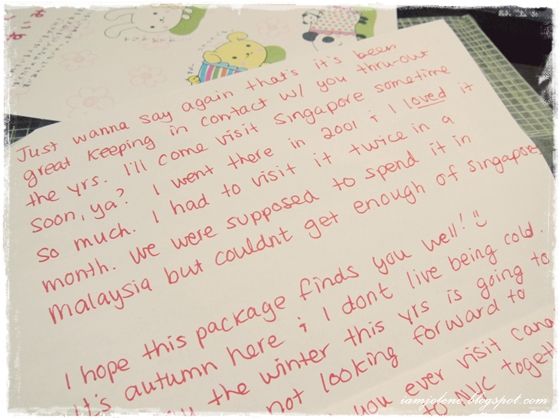 Just wanna say again that's it's been
great keeping in contact w/ you thru-out
the yrs. I'll come visit Singapore sometime
soon, ya? I went there in 2001 & I loved it
so much. I had to visit it twice in a
month. We were supposed to spend it in
Malaysia but couldnt get enough of Singapore
I hope this package finds you well!
it's autumn here & I dont live being cold.
the winter this yrs is going to
not looking forward to
you ever visit Cana
NYC togeth
iamjolene.blogspot.com